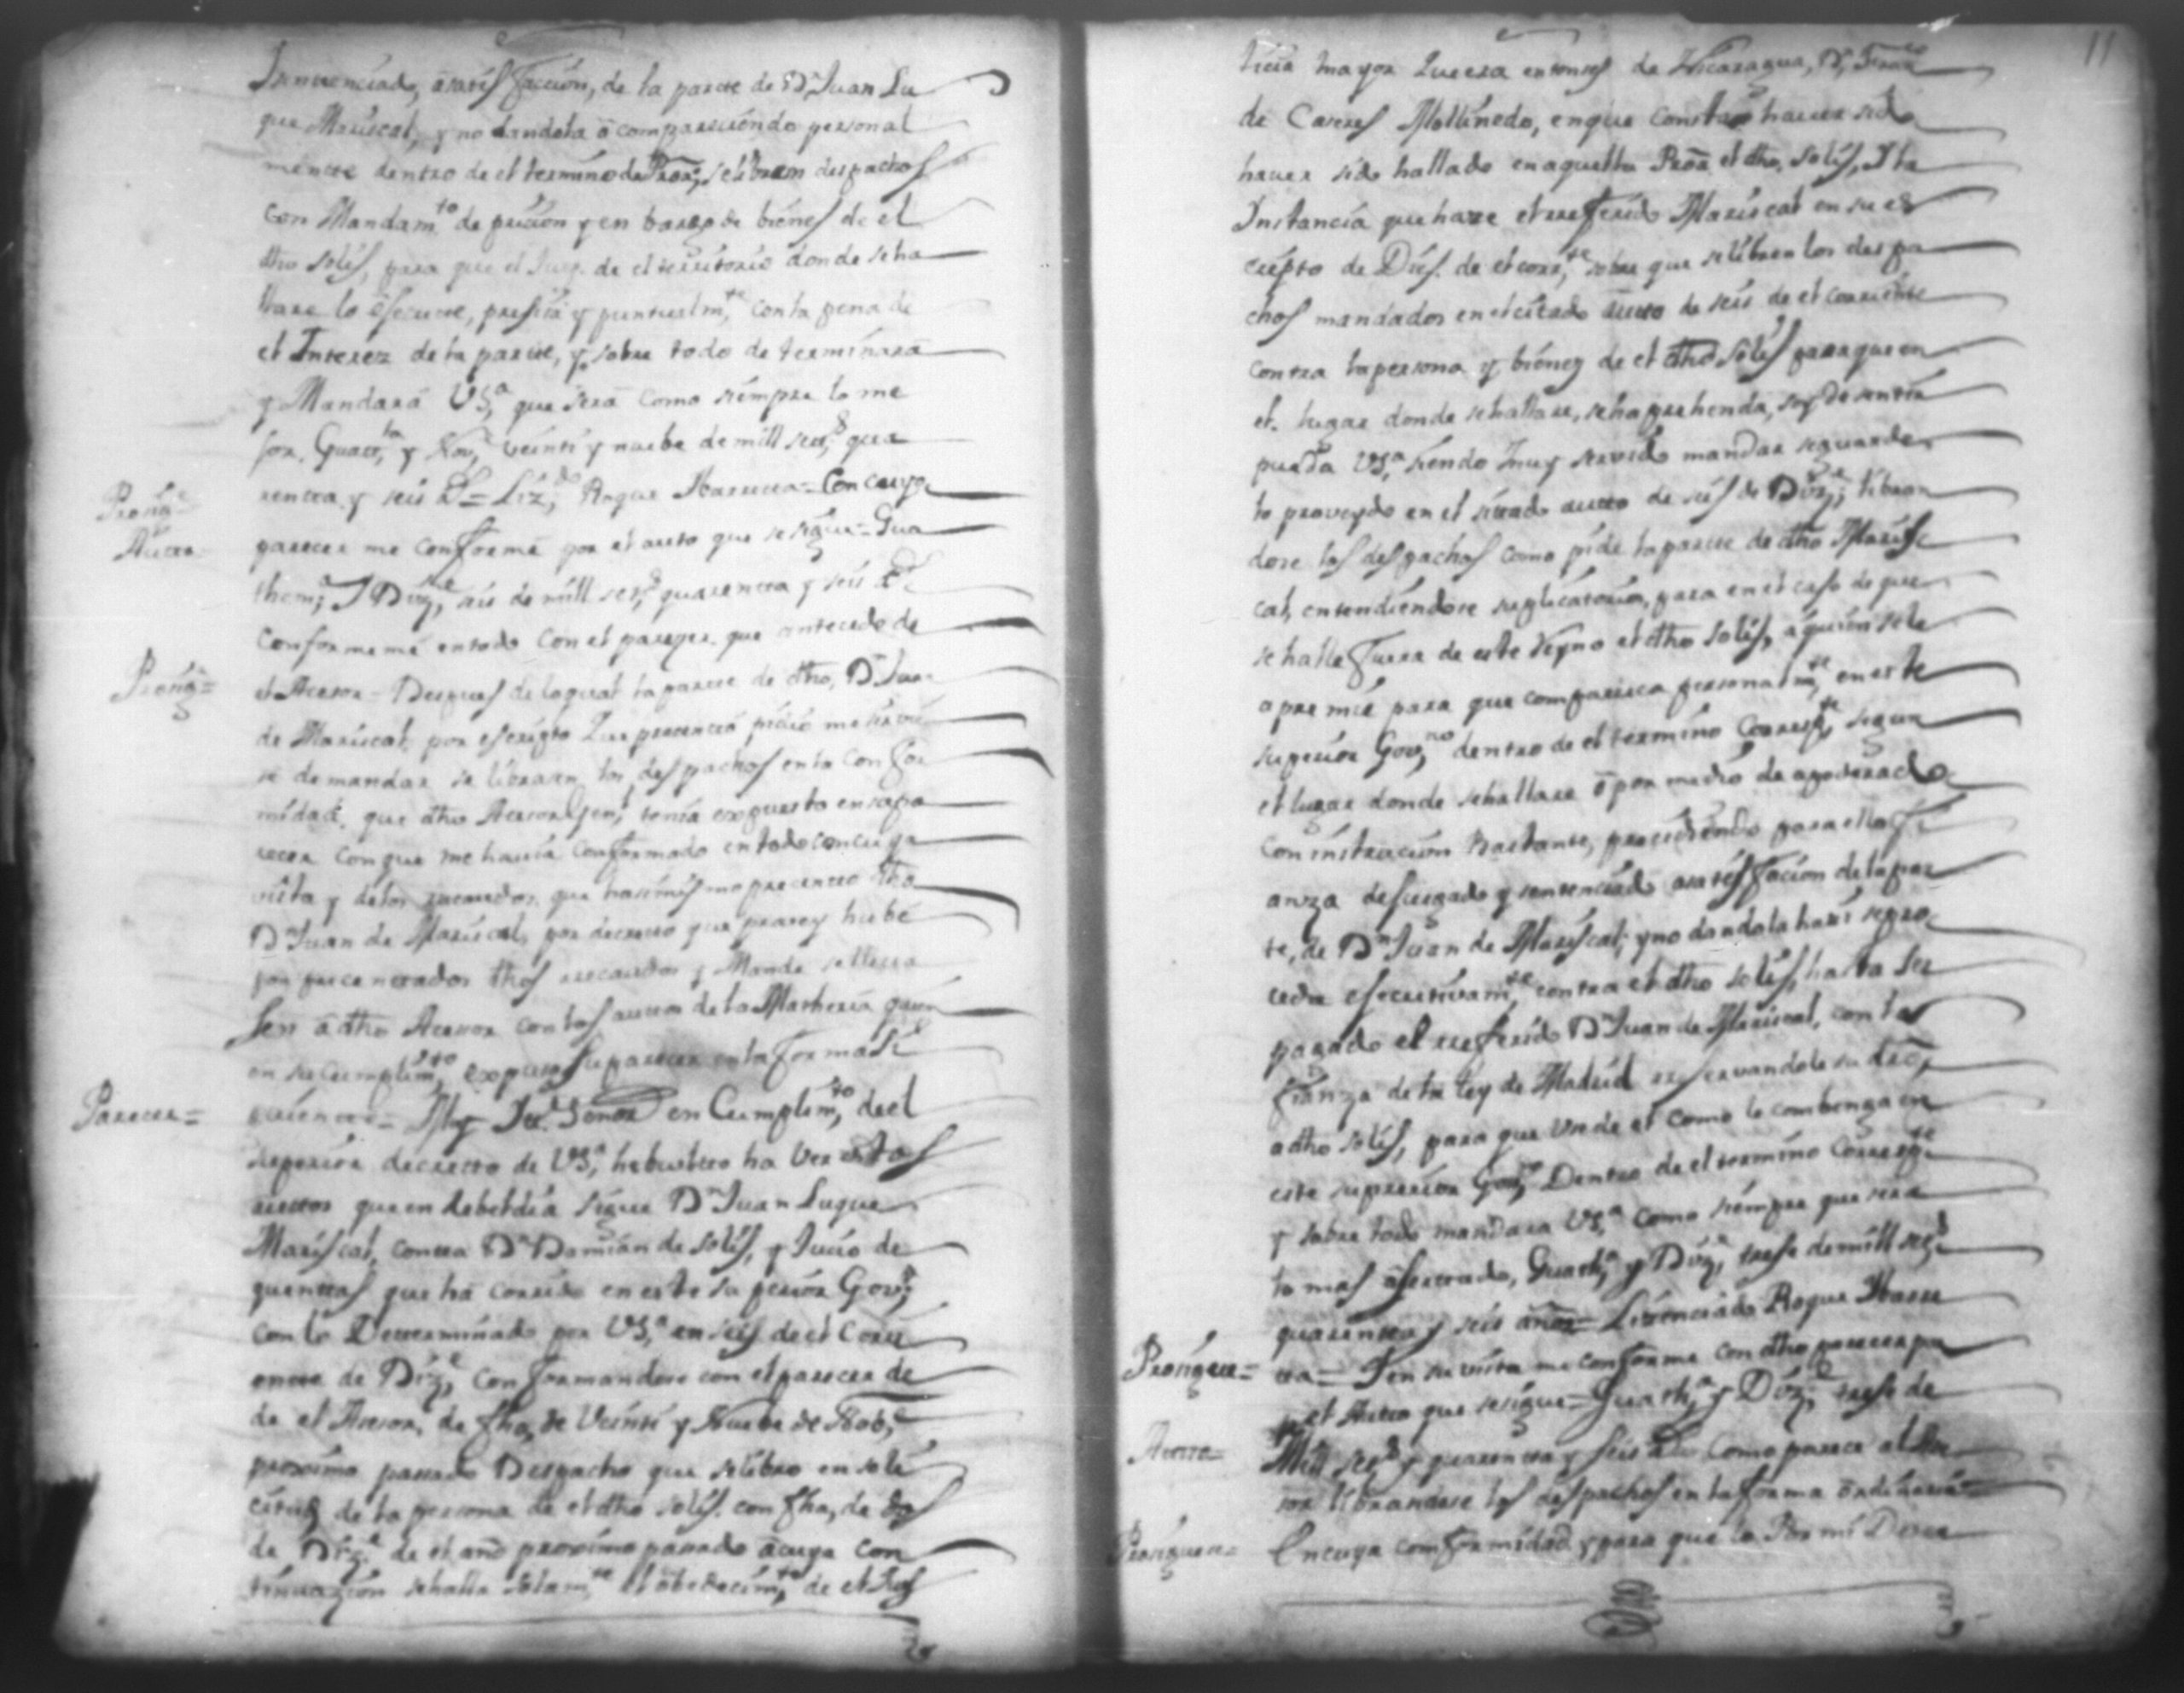 Sentenciado, a satisfaccion, de la parte de Dn Juan Lu
que Mariscal, y no dandola ò compareciendo personal
mente dentro de el termino de Prora; se libren despachos
con Mandamto de pricion y en bargo de biènes de el
dho Solis, para que el Juez de el territorio donde se ha
llare lo ejecute, precisa y puntualmte, con la pena de
el Interez de la parte, y sobre todo determinarà
y Mandarà VSa, que serà como siempre lo me
jor. Guatta, y Nove, veinti y nuebe de mill setts, qua
renta y seis as = Lizdo, Roque Ibarreta = Con cuyo
Prosigue
Auto
parecer me conforme por el auto que se sigue = Gua
thema; y Dize, seis de mill sets, quarenta y seis as
Conformeme en todo con el parecer que antecede de
Prosigue=
el Acesor = Despues de lo qual la parte de dho, Dn Juan
de Mariscal, por escripto que precentò pidio me sirvie
se de mandar se librasen los despachos en la confor
midad, que dho Acesor Genl, tenia expuesto en su pa
recer con que me havia conformado en todo con cuya
vista y de los recaudos, que hasimismo precento dho
Dn Juan de Mariscal, por decreto que provey hube
por precentados dhos recaudos y Mande se lleva
sen à dho Acesor con los autos de la Matheria quien
en su cumplimto, expuso su parecer en la forma si
Parecer=
guiente = Muy Ile Señor en Cumplimto, de el
superior decreto de VSa, he buelto ha ver estos
autos que en Rebeldia sigue Dn Juan Luque
Mariscal, contra Dn Damian de Solis, y Juicio de
quentas que ha corrido en este superior Govno,
con lo Determinado por VSa, en seis de el Corri
ente de Dize, conformandose con el parecer de
de el Acesor, de fha, de Veinti y Nuebe de Nobe,
proximo pasado Despacho que se libro en soli
citud de la persona de el dho Solis con fha, de dos
de Dize de el año proximo pasado a cuya con
tinuazion se halla solamte el obedecimto, de el Jus
11
ticia mayor que era entonses de Nicaragua, Dn Franco
de Caseres Mollinedo, en que consta haver sido
haver sido hallado en aquella Proa el dho, Solis, y la
Instancia que haze el referido Mariscal en su es
cripto de Dies de el corrte, sobre que se libren los despa
chos mandados en el citado auto de seis de el corriente
contra la persona y biènes de el dho Solis para que en
el lugar donde se hallare, se ha prehenda,
pueda VSa, siendo muy servido mandar se guarde
lo proveydo en el sitado auto de seis de Dize, libran
dose los despachos como pide la parte de dho Maris
cal, entendiendose suplicatorio, para en el caso de que
se halle fuera de este Reyno el dho Solis, à quien se le
apremie para que comparesca personalmte, en este
superior Govno, dentro de el termino Correspte, segun
el lugar donde se hallare ò por medio de apoderado
con instruccion Bastante, precediendo para ello fi
anza de Jusgado y sentenciado a satisfacion de la par
te, de Dn Juan de Mariscal, y no dandola harà se pro
ceda ejecutivamte, contra el dho Solis, hasta ser
pagado el referido Dn Juan de Mariscal, con la
fianza de la ley de Madrid reservandole su dro,
a dho Solis, para que use de èl como le combenga en
este superior Govno, Dentro de el termino Correspte
y sobre todo mandara VSa, como siempre que serà
lo mas asertado, Guatha, y Dize, trese de mill sets
quarenta y seis años = Lizenciado Roque Ibarre
Prosigue=
ta = Y en su vista me conforme con dho parecer por
el Auto que se sigue = Guatha, y Dize, trese de
Auto=
Mill sets y quarenta y seis as = Como parece al Ace
sor librandose los despachos en la forma ordinaria =
Prosigue=
En cuya conformidad y para que lo Por mi Deter